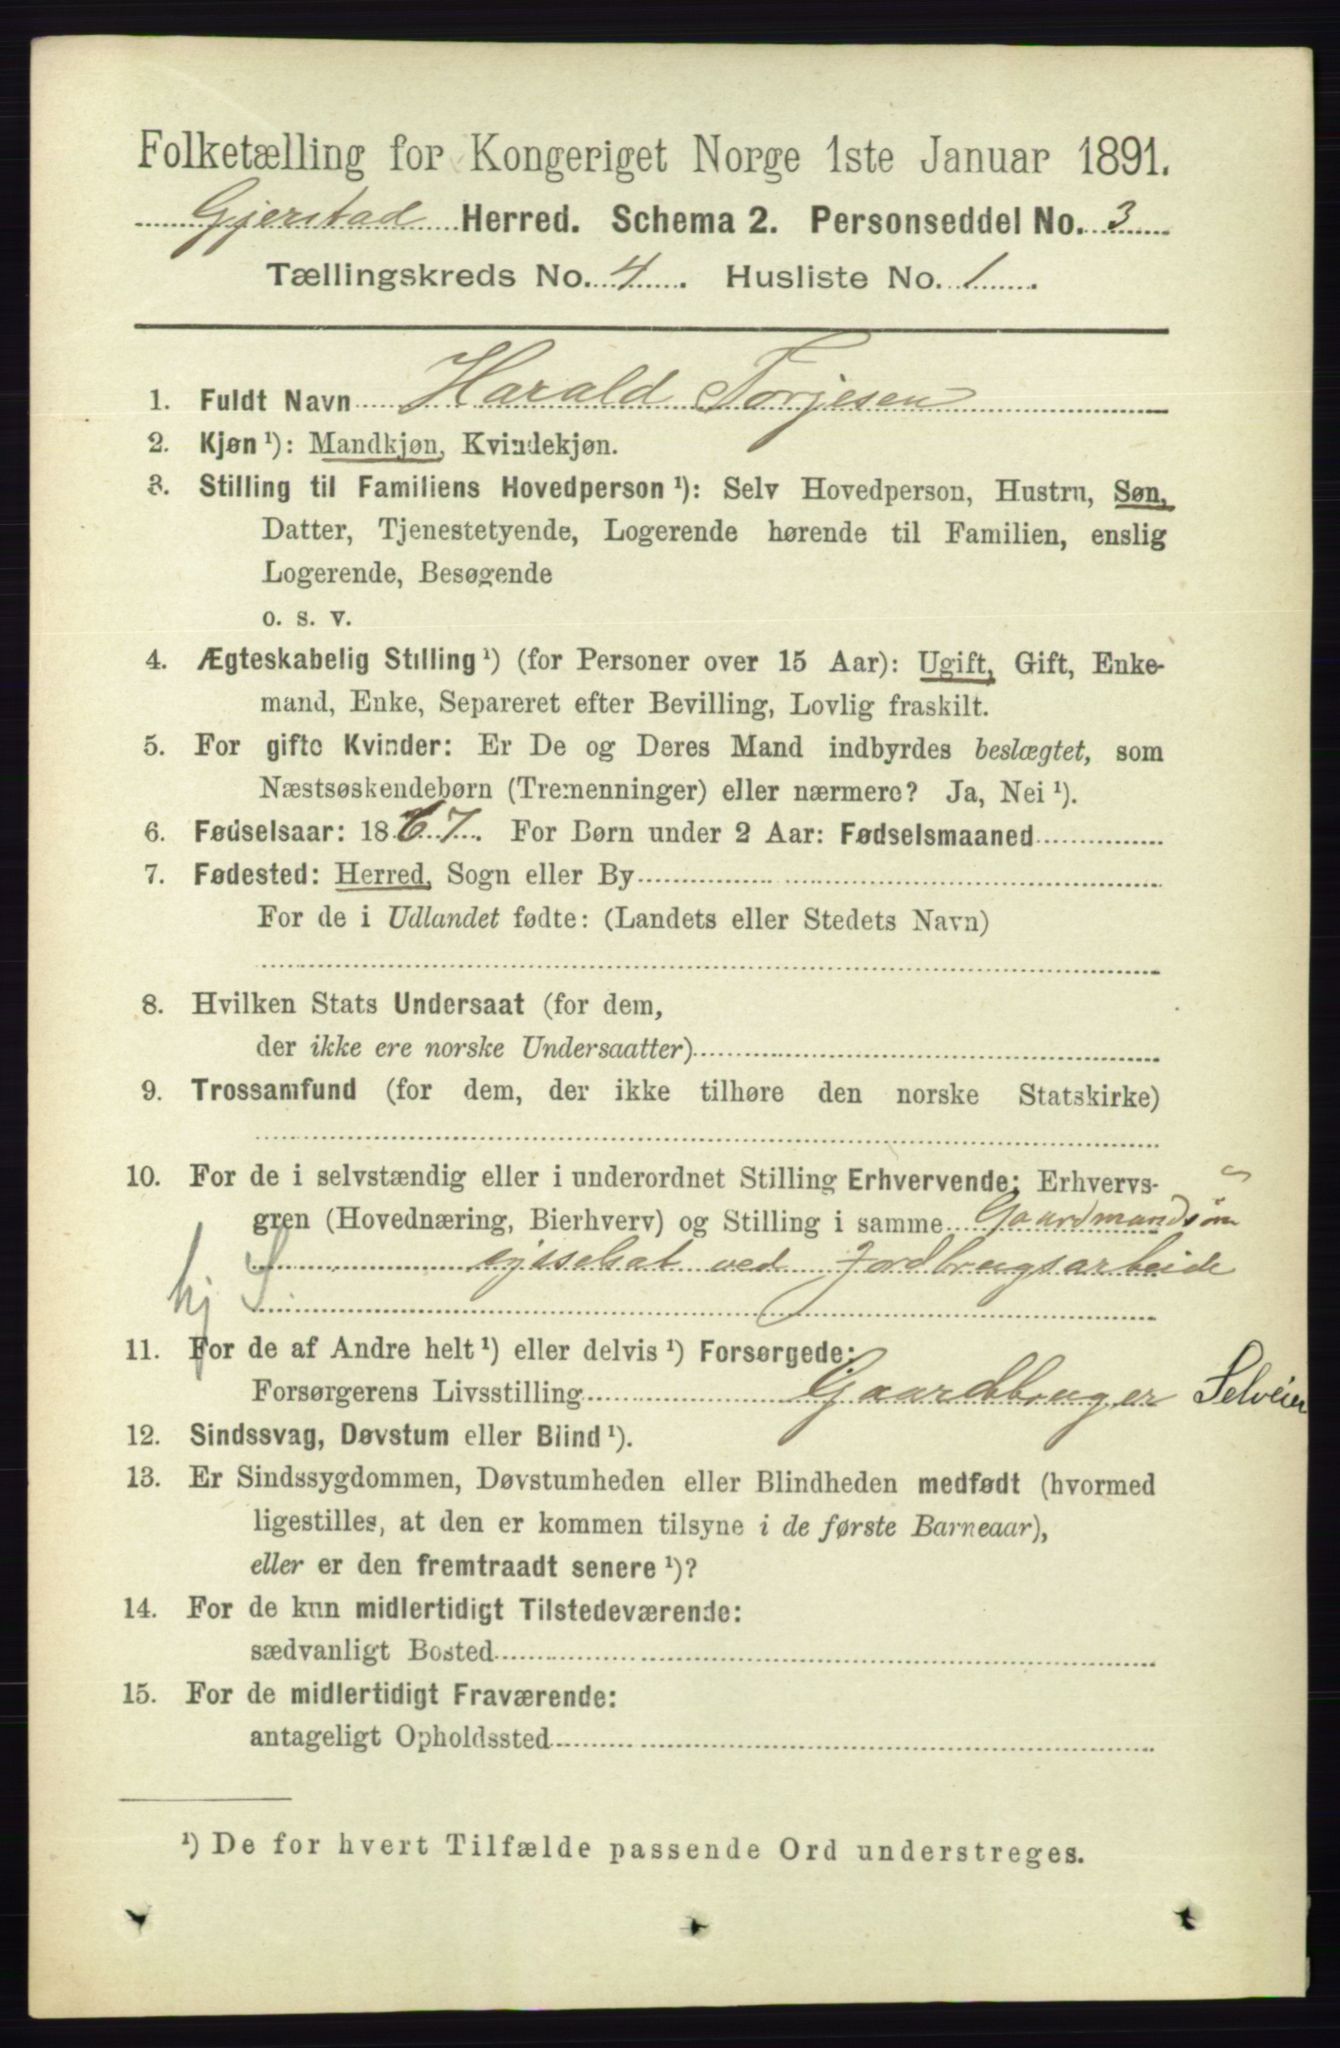 Folketælling for Kongeriget Norge 1ste Januar 1891.
Gjerstad Herred. Schema 2. Personseddel No. 3
Tællingskreds No. 4. Husliste No. 1.
1. Fuldt Navn Harald Torjesen
2. Kjøn ¹): Mandkjøn, Kvindekjøn.
3. Stilling til Familiens Hovedperson ¹): Selv Hovedperson, Hustru, Søn,
Datter, Tjenestetyende, Logerende hørende til Familien, enslig
Logerende, Besøgende
o. s. v.
4. Ægteskabelig Stilling ¹) (for Personer over 15 Aar): Ugift, Gift, Enke-
mand, Enke, Separeret efter Bevilling, Lovlig fraskilt.
5. For gifte Kvinder: Er De og Deres Mand indbyrdes beslægtet, som
Næstsøskendebørn (Tremenninger) eller nærmere? Ja, Nei ¹).
6. Fødselsaar: 1867. For Børn under 2 Aar: Fødselsmaaned
7. Fødested: Herred, Sogn eller By
For de i Udlandet fødte: (Landets eller Stedets Navn)
8. Hvilken Stats Undersaat (for dem,
der ikke ere norske Undersaatter)
9. Trossamfund (for dem, der ikke tilhøre den norske Statskirke)
10. For de i selvstændig eller i underordnet Stilling Erhvervende: Erhvervs-
gren (Hovednæring, Bierhverv) og Stilling i samme Gaardmandsøn
sysselsat ved Jordbrugsarbeide
hj S
11. For de af Andre helt ¹) eller delvis ¹) Forsørgede:
Forsørgerens Livsstilling Gaardbruger Selveier
12. Sindssvag, Døvstum eller Blind ¹).
13. Er Sindssygdommen, Døvstumheden eller Blindheden medfødt (hvormed
ligestilles, at den er kommen tilsyne i de første Barneaar),
eller er den fremtraadt senere ¹)?
14. For de kun midlertidigt Tilstedeværende:
sædvanligt Bosted
15. For de midlertidigt Fraværende:
antageligt Opholdssted
¹) De for hvert Tilfælde passende Ord understreges.